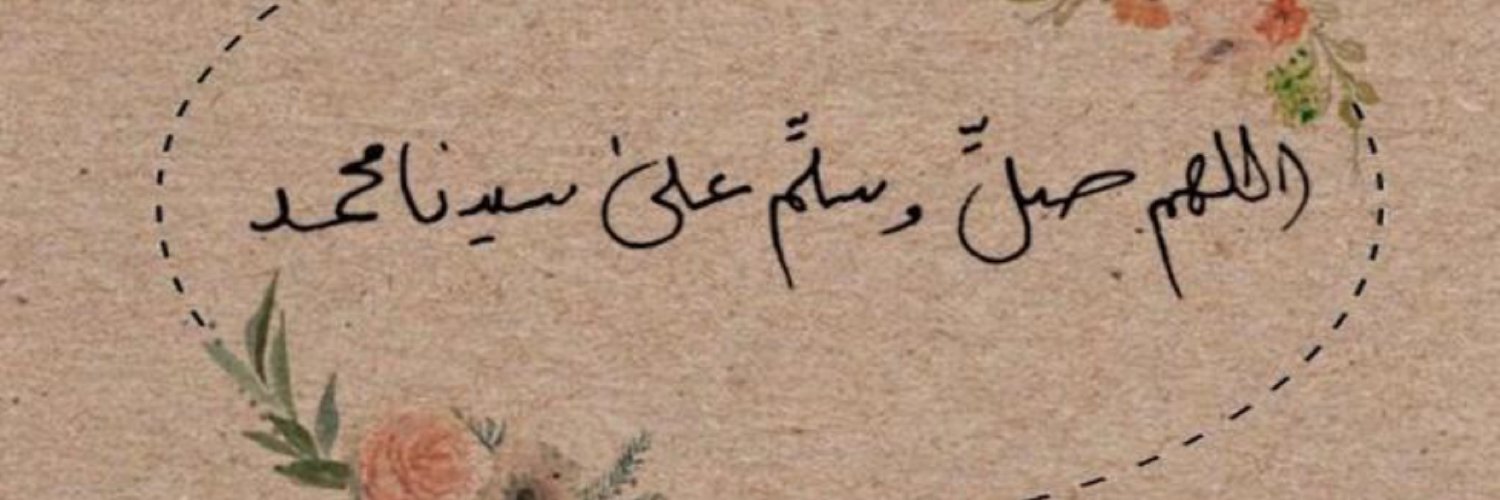 اللهم صلِّ وسلِّم على سيدنا محمد